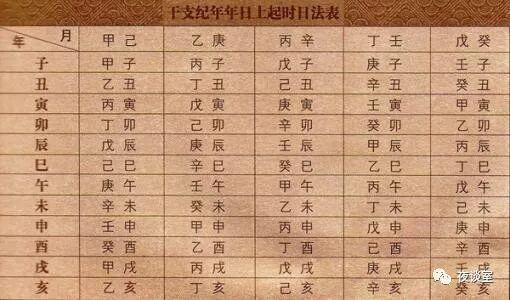 干支纪年年日上起时日法表
年 月 甲己 乙庚 丙辛 丁壬 戊癸
子 甲子 丙子 戊子 庚子 壬子
丑 乙丑 丁丑 己丑 辛丑 癸丑
寅 丙寅 戊寅 庚寅 壬寅 甲寅
卯 丁卯 己卯 辛卯 癸卯 乙卯
辰 戊辰 庚辰 壬辰 甲辰 丙辰
巳 己巳 辛巳 癸巳 乙巳 丁巳
午 庚午 壬午 甲午 丙午 戊午
未 辛未 癸未 乙未 丁未 己未
申 壬申 甲申 丙申 戊申 庚申
酉 癸酉 乙酉 丁酉 己酉 辛酉
戌 甲戌 丙戌 戊戌 庚戌
亥 乙亥 丁亥 己亥 辛亥 癸亥
夜谈室